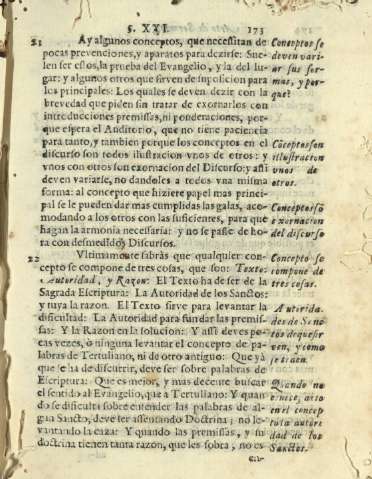 §. XXI.
173
21
Ay algunos conceptos, que necessitan de
pocas prevenciones, y aparatos para dezirse: Sue-
len ser estos, la prueba del Evangelio, y la del lu-
gar; y algunos otros que sirven de disposicion para
los principales: Los quales se deven dezir con la
brevedad que piden sin tratar de exornarlos con
introducciones premissas, ni ponderaciones, por-
que espera el Auditorio, que no tiene paciencia
para tanto, y tambien porque los conceptos en el
discurso son todos ilustracion vnos de otros; y
vnos con otros son exornacion del Discurso; y assi
deven variarse, no dandoles a todos vna misma
forma: al concepto que hiziere papel mas princi-
pal se le pueden dar mas cumplidas las galas, aco-
modando a los otros con las suficientes, para que
hagan la armonia necessaria: y no se passe de ho-
ra con desmedidos Discursos.
Conceptos se
deven vari-
ar sus for-
mas, y por-
que?
Cōceptos son
illustracion
vnos de
otros.
Conceptos sō
exornacion
del discurso
22
Vltimamente sabràs que qualquier con-
cepto se compone de tres cosas, que son: Texto:
Autoridad, y Razon: El Texto ha de ser de la
Sagrada Escriptura: La Autoridad de los Santos:
y tuya la razon. El Texto sirve para levantar la
dificultad: La Autoridad para fundar las premis-
sas: Y la Razon en la solucion: Y assi deves po-
cas vezes, ò ninguna levantar el concepto de pa-
labras de Tertuliano, ni de otro antiguo: Que yà
que se ha de discurrir, deve ser sobre palabras de
Escriptura: Que es mejor, y mas decente buscar
el sentido al Evangelio, que a Tertuliano: Y quan-
do se dificulta sobre entender las palabras de al-
gun Sancto, deve ser assentando Doctrina; no le-
vantando la caza: Y quando las premissas, y su
doctrina tienen tanta razon, que les sobra, no es
Concepto se
compone de
tres cosas.
Autorida-
des de San-
tos de que sir-
ven, y como
se traen.
Quando no
en el concep
to la autori
dad de los
Sanctos.
en-